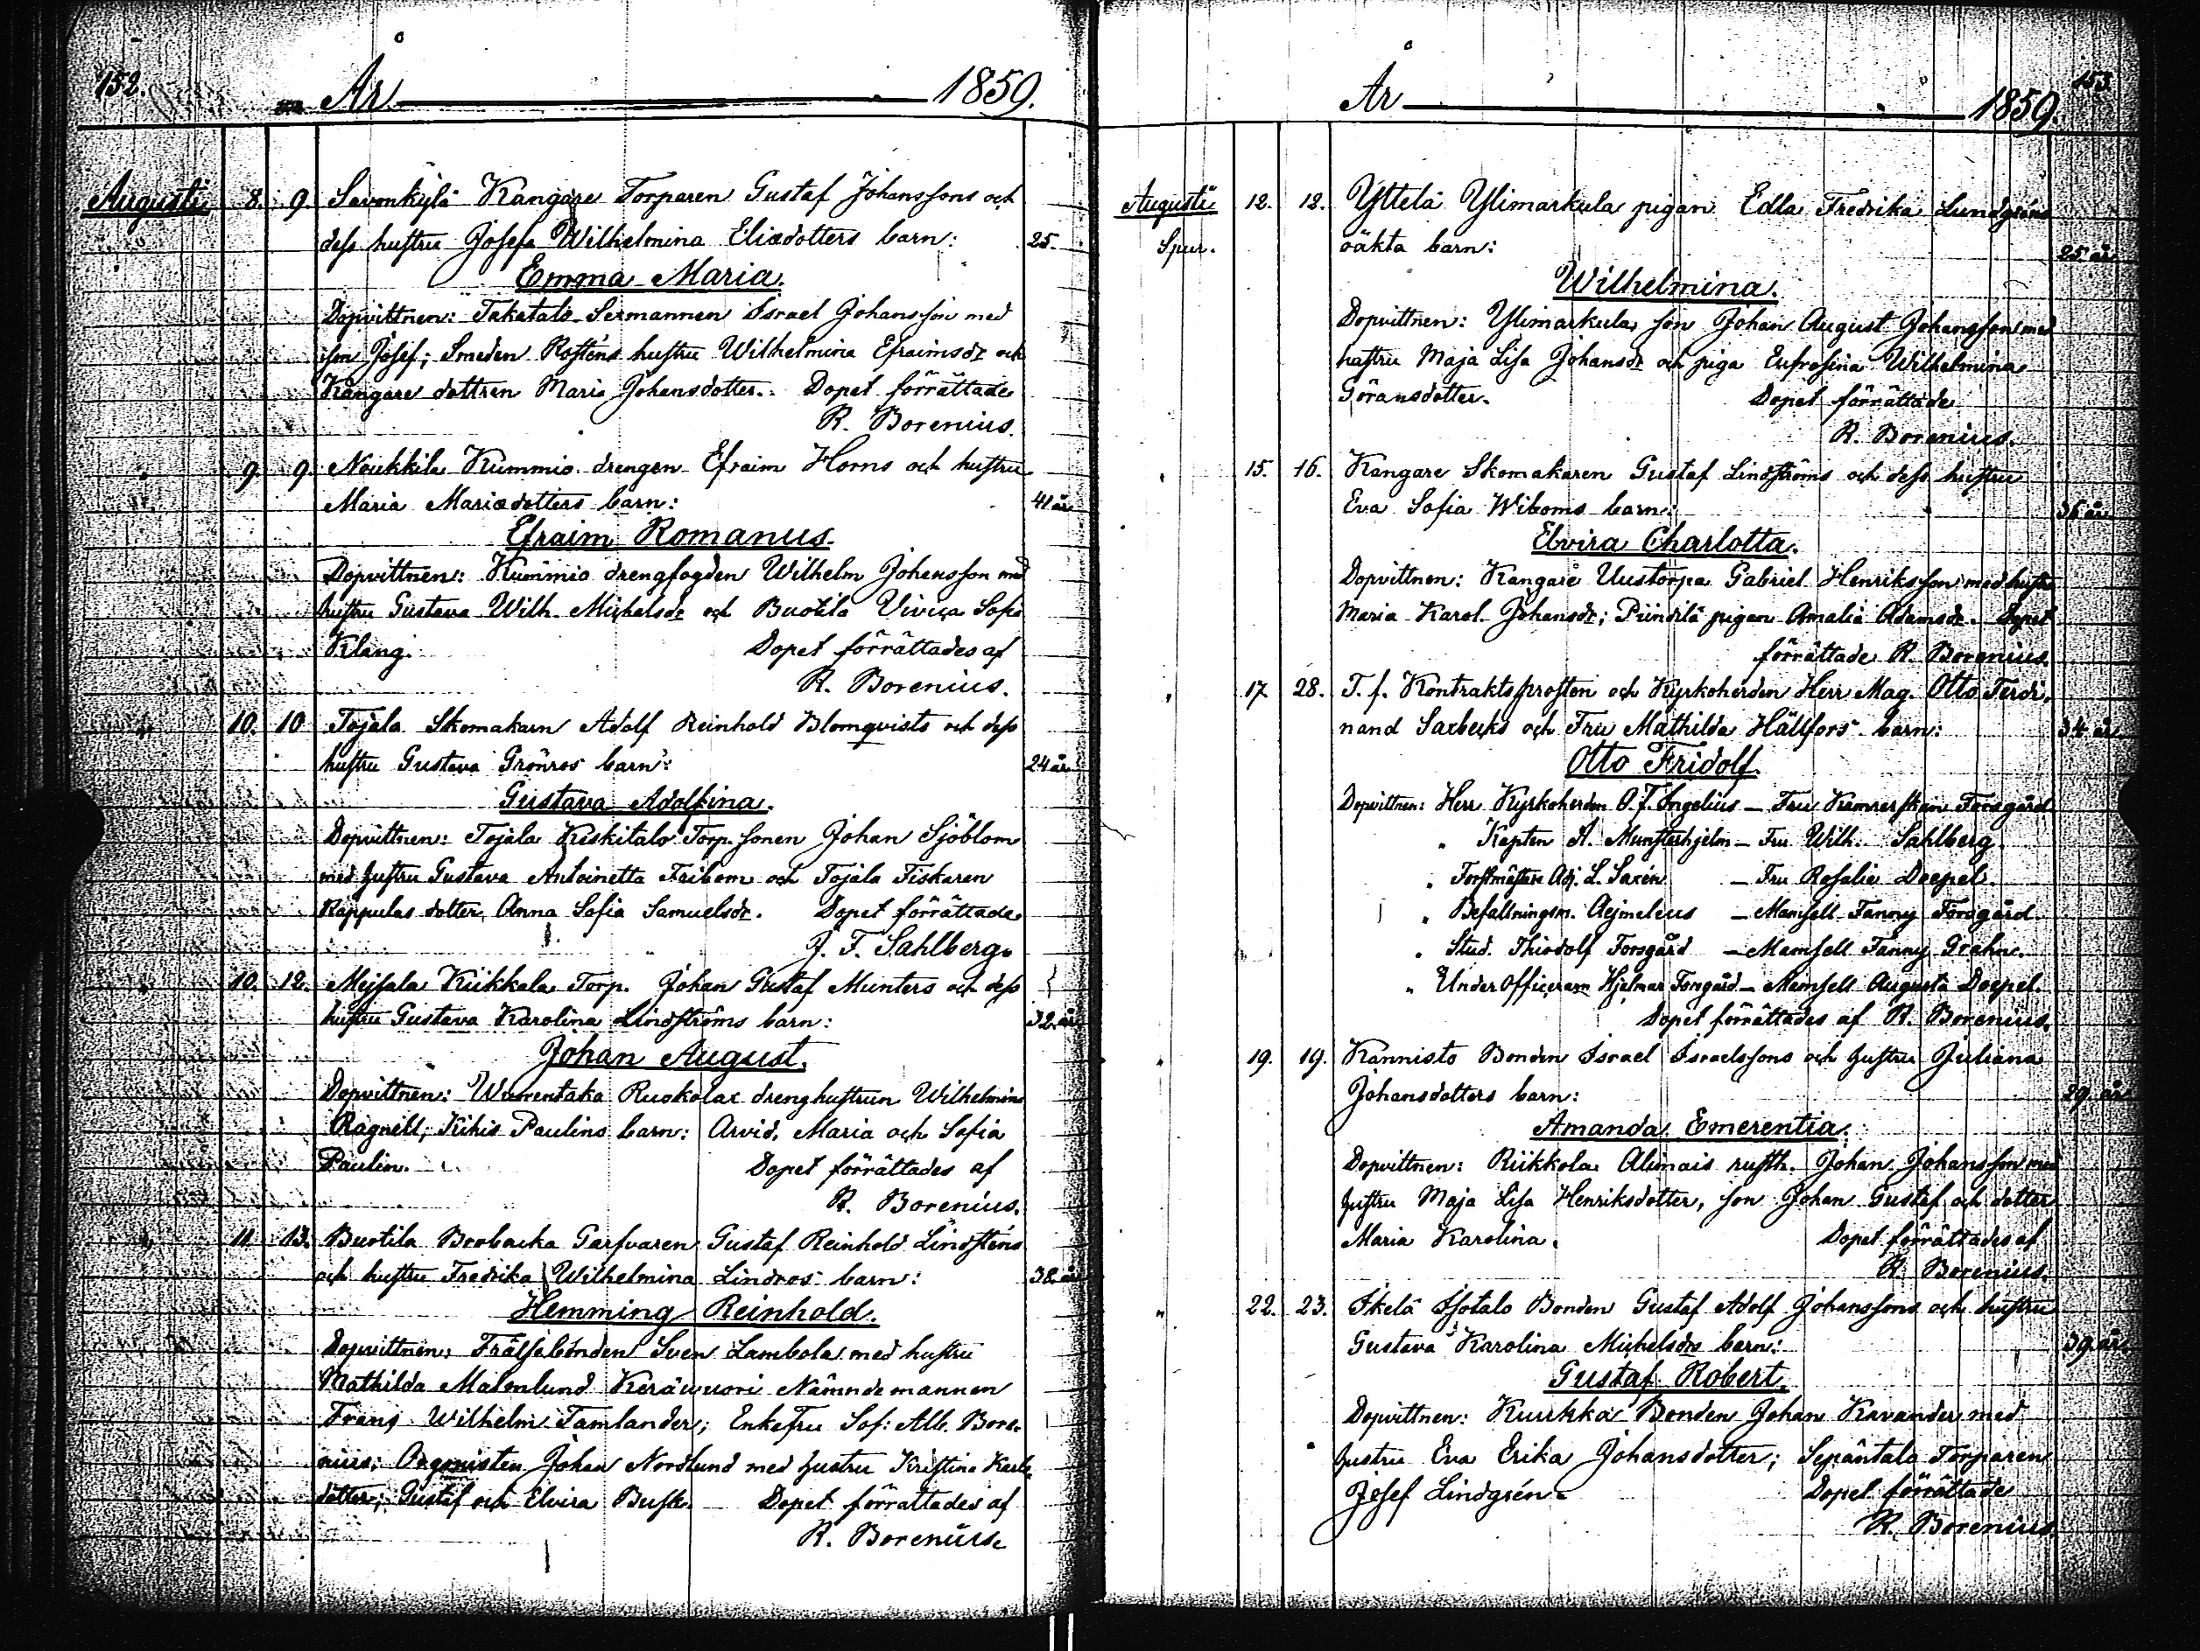 152.
År 1859.
Augusti 8. 9. Savonkylä Kangare Torparen Gustaf Johanssons och
dess hustru Josefa Wilhelmina Eliædotters barn: 25.
Emma Maria.
Dopvittnen: Takatalo Sexmannen Israel Johansson med
son Josef; Smeden Rosténs hustru Wilhelmina Efraimsdr och
Kangare dottren Maria Johansdotter. Dopet förrättade
R. Borenius.
9. 9. Noukkila Kummio drengen Efraim Horns och hustru
Maria Mariædotters barn: 41 år
Efraim Romanus.
Dopvittnen: Kummio drengfogden Wilhelm Johansson med
hustru Gustava Wilh. Michelsdr och Buotila Viviça Sofia
Klang. Dopet förrättades af
R. Borenius.
10. 10 Tojala Skomakarn Adolf Reinhold Blomqvists och dess
hustru Gustava Grönroos barn: 24 år
Gustava Adolfina.
Dopvittnen: Tojala Keskitalo Torp. sonen Johan Sjöblom
med hustru Gustava Antoinetta Faibom och Tojala Fiskaren
Rappulas dotter Anna Sofia Samuelsdr. Dopet förrättade
J. F. Sahlberg.
10. 12. Mejsala Kiikkala Torp. Johan Gustaf Munters och dess
hustru Gustava Karolina Lindströms barn: 32. år
Johan August.
Dopvittnen: Wuorentaka Ruokolax drenghustrun Wilhelmina
Ragnell, Kihis Paulins barn: Arvid, Maria och Sofia
Paulin. Dopet förrättades af
R. Borenius.
11 13. Buotila Brobacka Garfvaren Gustaf Reinhold Lindsténs
och hustru Fredrika Wilhelmina Lindroos barn: 38 år
Hemming Reinhold.
Dopvittnen: Frälsebonden Sven Lambola med hustru
Mathilda Malmlund Keräwuori Nämndemannen
Frans Wilhelm Tamlander; Enkefru Sof: Alb. Bore-
nius; Organisten Johan Nordlund med hustru Kristina Karls
dotter; Gustaf och Elvira Busk. Dopet förrättades af
R. Borenius.
153
År 1859.
Augusti 12. 12. Yttelä Ylimarkula pigan Edla Fredrika Lundgréns
Spur. oäkta barn: 25 år
Wilhelmina.
Dopvittnen: Ylimarkula son Johan August Johansson med
hustru Maja Lisa Johansdr och piga Eufrosina Wilhelmina
Göransdotter. Dopet förrättade
R. Borenius.
15. 16. Kangare Skomakaren Gustaf Lindströms och dess hustru
Eva Sofia Wiboms barn: 36 år
Elvira Charlotta.
Dopvittnen: Kangare Uustorpa Gabriel Henriksson med hustru
Maria Karol. Johansdr; Piindilä pigan Amalia Adamsdr. Dopet
förrättade R. Borenius.
17. 28. T. f. Kontraktsprosten och Kyrkoherden Herr Mag. Otto Ferdi,
nand Saxbecks och Fru Mathilda Hällfors barn: 34 år
Otto Fridolf.
Dopvittnen: Herr Kyrkoherden O. F. Ingelius — Fru Kamrerskan Forsgård
" Kapten A. Munsterhjelm — Fru Wilh. Sahlberg.
" Forstmästare Adj. L. Saxén — Fru Rosalie Doepel.
" Befallningsm. Aejmeleus — Mamsell Fanny Forsgård.
" Stud. Thiodolf Forsgård — Mamsell Fanny Grahn.
" Under Officeraren Hjalmar Forsgård — Mamsell Augusta Doepel.
Dopet förrättades af R. Borenius.
" 19. 19. Kannisto Bonden Israel Israelssons och hustru Juliana
Johansdotters barn: 29 år
Amanda Emerentia.
Dopvittnen: Riikkola Alimais rusth. Johan Johansson med
hustru Maja Lisa Henriksdotter, son Johan Gustaf och dotter
Maria Karolina. Dopet förrättades af
R. Borenius.
" 22. 23. Ikelä Isotalo Bonden Gustaf Adolf Johanssons och hustru
Gustava Karolina Michelsdrs barn: 39 år.
Gustaf Robert.
Dopvittnen: Kuukka Bonden Johan Kavander med
hustru Eva Erika Johansdotter; Sepäntalo Torparen
Josef Lindgrén. Dopet förrättade
R. Borenius.